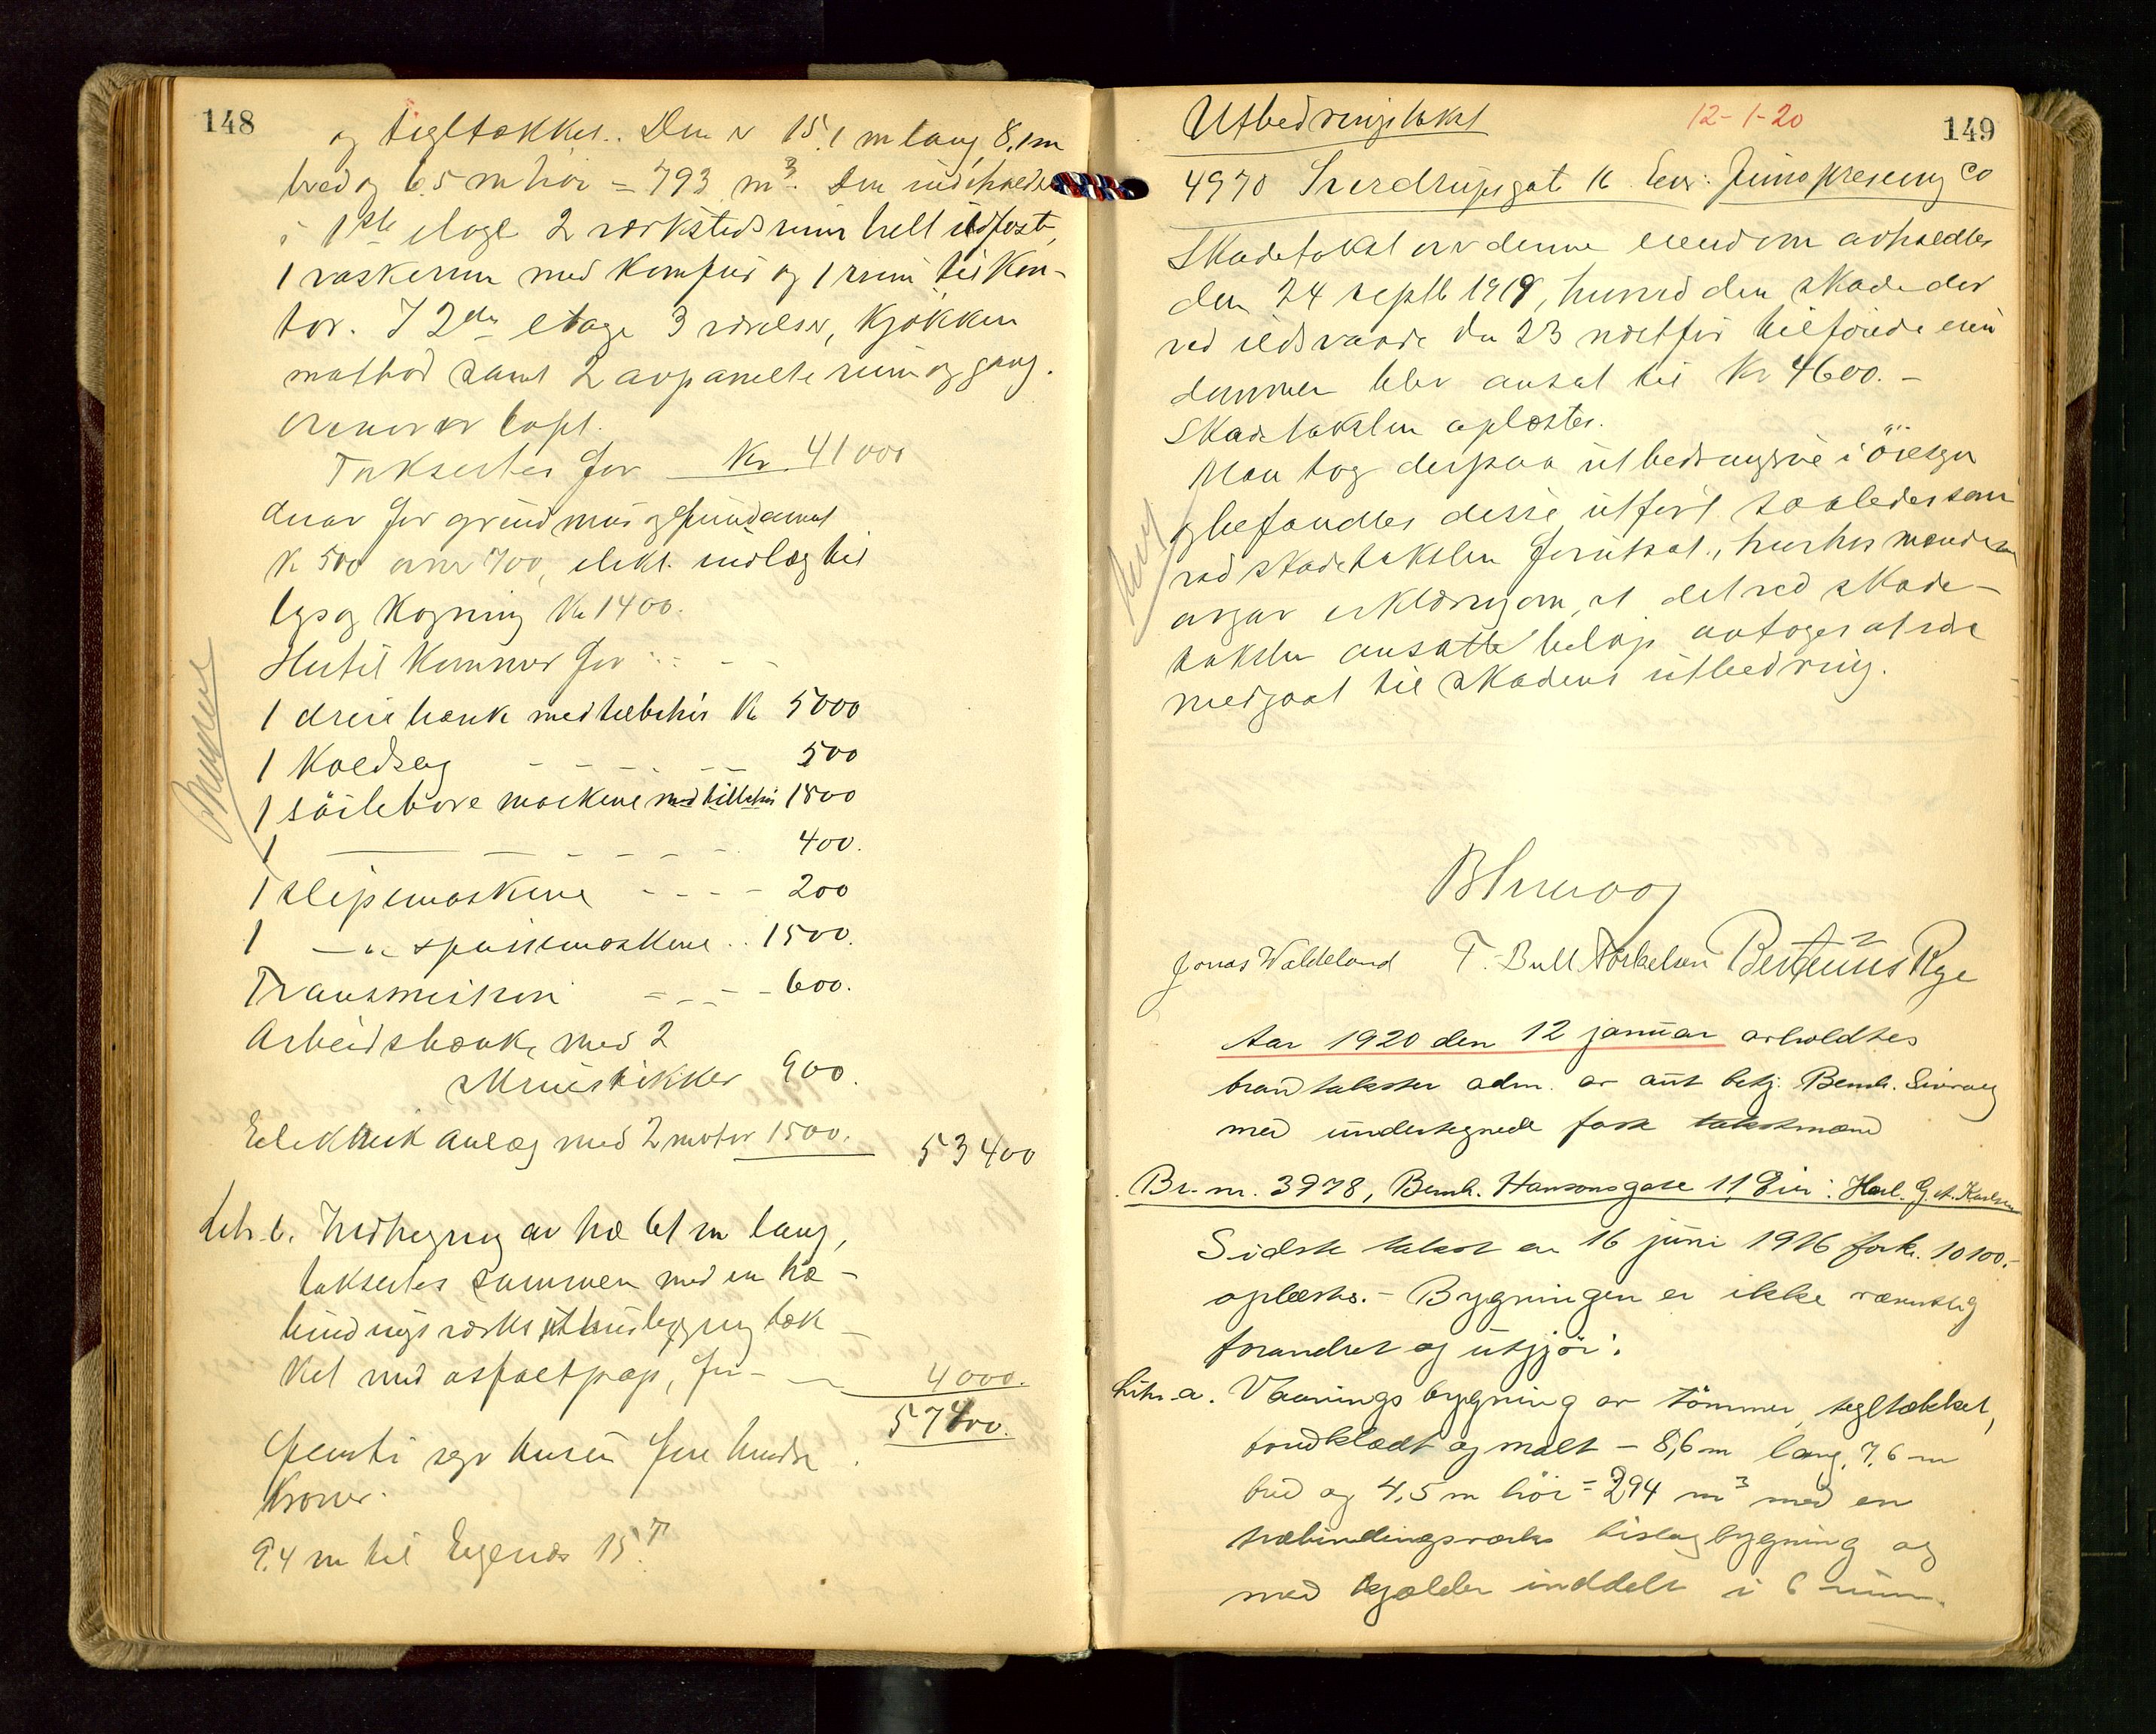 148
og tegltækket. Den er 15.1 m lang, 8.1 m
bred og 6.5 m høi = 793 m³. Den indeholder
i 1ste etage 2 værkstedsrum helt ildfast,
1 vaskerum med komfur og 1 rum til kon-
tor. I 2den etage 3 værelser, kjøkken
matbod samt 2 avpanelte rum og gang.
Ovenover loft.
Takseres for Kr. 41000
derav for grundmur og fundament
k 500 700, elekt. indlæg til
lys og kogning Kr 1400.
Hertil kommer for
1 dreiebænk med tilbehør Kr 5000
1 Koldsag 500
1 søileboremaskine med tilbehør 1800
1 400.
1 slipemaskine 200
1 pussemaskine 1500.
Transmission 600.
Arbeidsbænk med 2
skruestikker 900.
Elektrisk anlæg med 2 motor 1500. 53400
Litr b. Indhegning av træ 61 m lang,
takseres sammen med en træ-
bindingsværks uthusbygning tæk-
ket med asfaltpap, for 4000.
57400.
Femti syv tusen fire hundre
Kroner.
9.4 m til Eigenæs 15.
Utbedringstakst 12-1-20 149
4970 Sverdrupsgt 16 Eier: Jims presening Co
Skadetakst over denne eiendom avholdtes
den 24 septb 1919, hvorved den skade der
ved ildsvaade den 23 næstfør tilføiede eien-
dommen blev ansat til Kr 4600.-
Skadetaksten oplæstes.
Man tog derpaa utbedringerne i øiesyn
og befandtes disse utført saaledes som
ved skadetaksten forutsat, hvorhos mændene
avgav erklæring om, at det ved skade-
taksten ansatte beløp antages at være
medgaat til skadens utbedring.
Jonas Waldeland T. Bull Torkelsen Bertinius Rye
Aar 1920 den 12 januar avholdtes
brandtakster adm. av aut betj. Bernh. Sivraag
med undertegnede faste takstmænd
Br. nr. 3978, Bernh. Hansonsgate 11 Eier: Harl. G. A. Karlsen
Sidste takst er 16 juni 1916 for kr. 10100.-
oplæstes.- Bygningen er ikke væsentlig
forandret og utgjør:
Litr. a. Vaaningsbygning av tømmer, tegltækket,
bordklædt og malt - 8,6 m lang, 7,6 m
bred og 4,5 m høi = 294 m³ med en
træbindingsværks bislagbygning og
med kjælder inddelt i 6 rum.